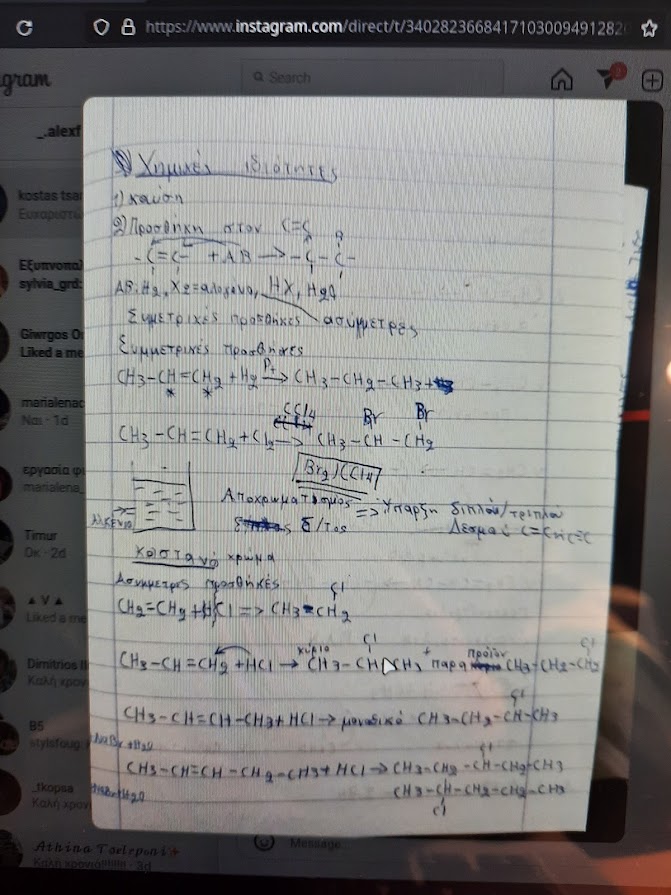 https://www.instagram.com/direct/t/340282366841710300949128
gram
Search
_.alexf
kostas tsa
Ευχαριστ
Εξυπνοπα
sylvia_grd:
Giwrgos O
Liked a me
marialena
Ναι · 1d
εργασία φ
marialena_
Timur
Οκ · 2d
▲ V ▲
Liked a me
Dimitrios
Καλή χρον
B5
stylsfoug
_tkopsa
Καλή χρον
Athina Tseleponi
Καλή χρονιά!!!!!!! · 3d
Message
Χημικές ιδιότητες
1) καύση
2) Προσθήκη στον C=C
-C=C- + AB → -C-C-
AB: H2, X2=αλογόνα, HX, H2O
Συμετρικές προσθήκες ασύμμετρες
Συμμετρικές προσθήκες
CH3-CH=CH2 + H2 Pt→ CH3-CH2-CH3
CCl4 Br Br
CH3-CH=CH2 + Cl2 → CH3-CH-CH2
Br2/CCl4
Αποχρωματισμος => Υπαρξη διπλού/τριπλου
αλκένιο Δ/τος Δεσμού C=C ή C≡C
Καστανό χρώμα
Ασυμμετρες προσθήκές
Cl
CH2=CH2 + HCl => CH3-CH2
Cl Cl
CH3-CH=CH2 + HCl → κύριο CH3-CH-CH3 + παρα προϊον CH3-CH2-CH2
Cl
CH3-CH=CH-CH3 + HCl → μοναδικό CH3-CH2-CH-CH3
Cl
CH3-CH=CH-CH2-CH3 + HCl → CH3-CH2-CH-CH2-CH3
CH3-CH-CH2-CH2-CH3
Cl